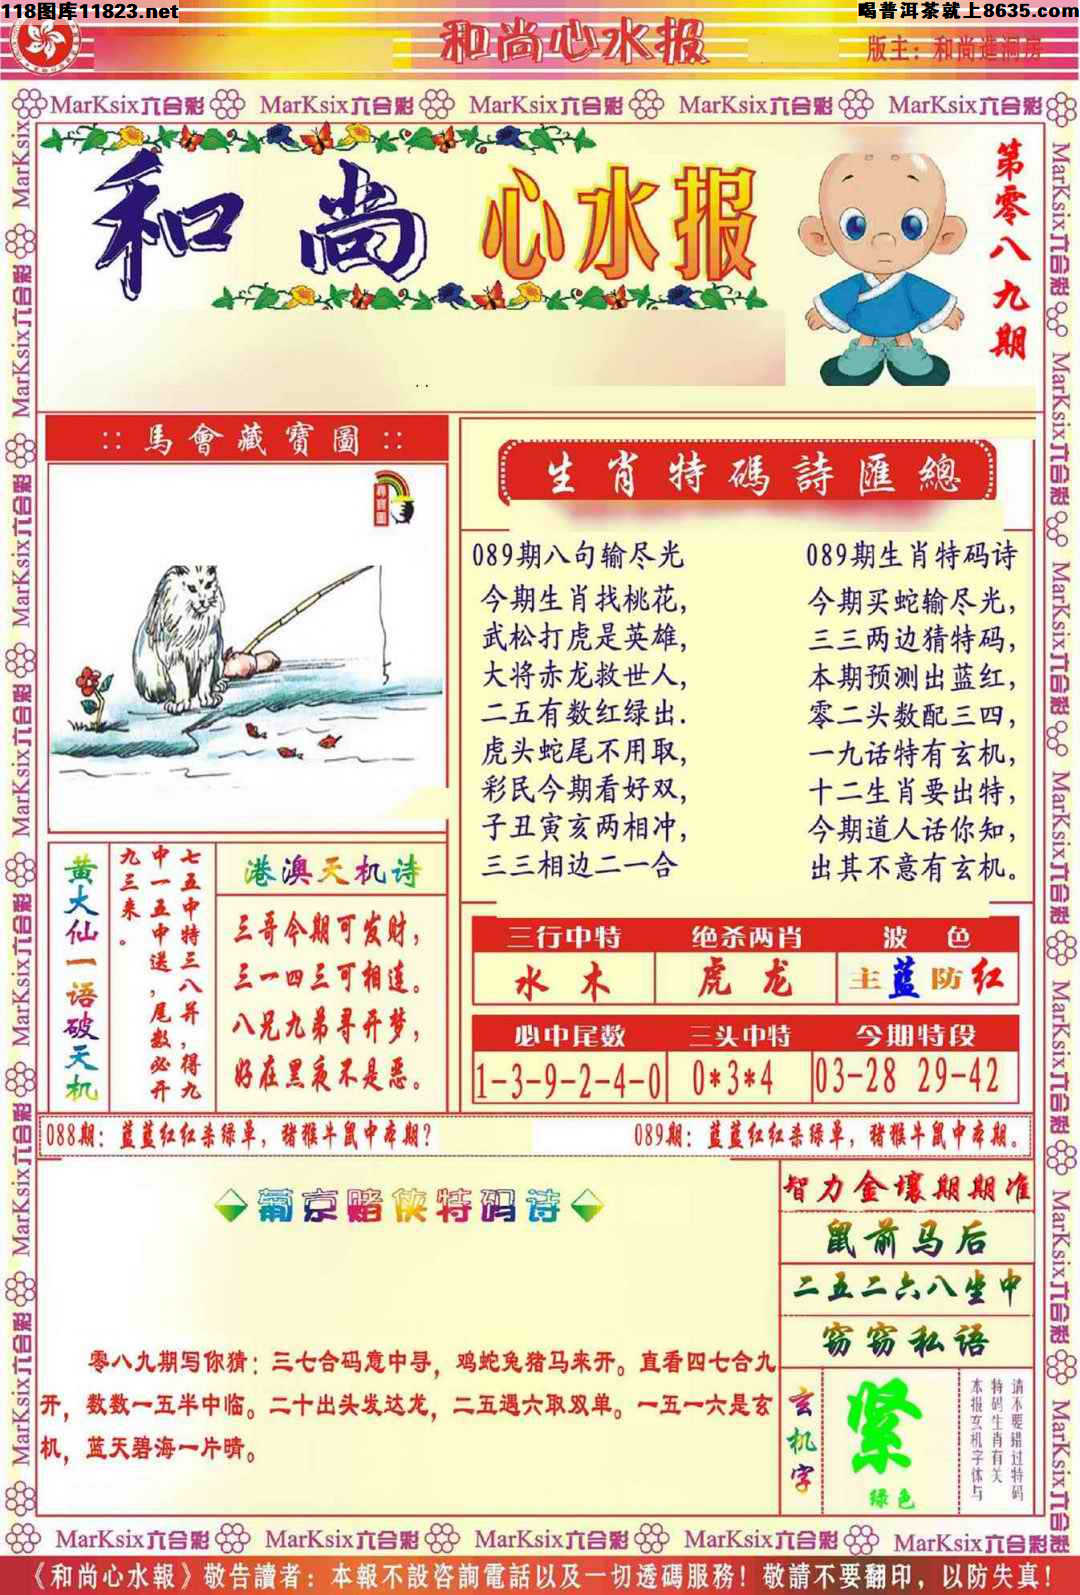 118图库11823.net
喝普洱茶就上8635.com
和尚心水报
版主：和尚進洞房
MarKsix六合彩 MarKsix六合彩 MarKsix六合彩 MarKsix六合彩 MarKsix六合彩
和尚心水报
第零八九期
馬會藏寶圖
尋寶圖
生肖特碼詩匯總
089期八句输尽光
今期生肖找桃花，
武松打虎是英雄，
大将赤龙救世人，
二五有数红绿出．
虎头蛇尾不用取，
彩民今期看好双，
子丑寅亥两相冲，
三三相边二一合
089期生肖特码诗
今期买蛇输尽光，
三三两边猜特码，
本期预测出蓝红，
零二头数配三四，
一九话特有玄机，
十二生肖要出特，
今期道人话你知，
出其不意有玄机。
黄大仙一语破天机
七五中特三八并，得九
中一五中送，尾数必开
九三来。
港澳天机诗
三哥今期可发财，
三一四三可相连。
八兄九弟寻开梦，
好在黑夜不是恶。
三行中特 绝杀两肖 波色
水木 虎龙 主蓝防红
必中尾数 三头中特 今期特段
1-3-9-2-4-0 0*3*4 03-28 29-42
088期：蓝蓝红红杀绿单，猪猴牛鼠中本期？
089期：蓝蓝红红杀绿单，猪猴牛鼠中本期。
葡京赌侠特码诗
零八九期写你猜：三七合码意中寻，鸡蛇兔猪马来开。直看四七合九
开，数数一五半中临。二十出头发达龙，二五遇六取双单。一五一六是玄
机，蓝天碧海一片晴。
智力金壤期期准
鼠前马后
二五二六八坐中
窃窃私语
玄机字
紧
绿色
请不要错过特码
特码生肖有关
本报玄机字体与
MarKsix六合彩 MarKsix六合彩 MarKsix六合彩 MarKsix六合彩 MarKsix六合彩
《和尚心水報》敬告讀者：本報不設咨詢電話以及一切透碼服務！敬請不要翻印，以防失真！